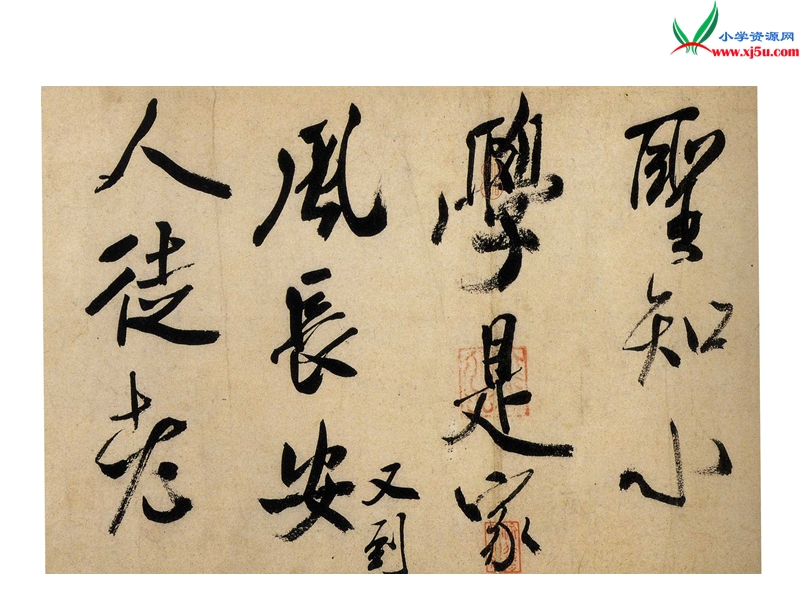 小学资源网
www.xj5u.com
聖知小
學是家
風長安
又到
人徒老